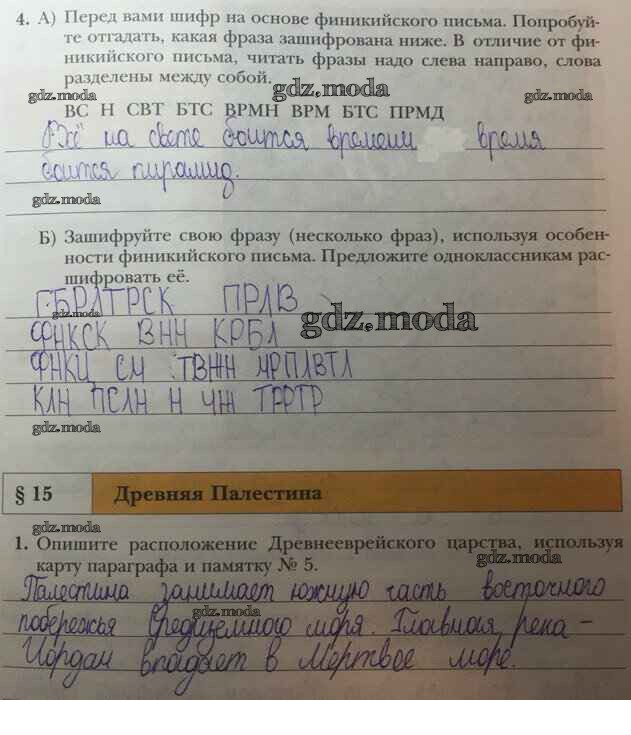 4. А) Перед вами шифр на основе финикийского письма. Попробуй-
те отгадать, какая фраза зашифрована ниже. В отличие от фи-
никийского письма, читать фразы надо слева направо, слова
разделены между собой.
gdz.moda
gdz.moda
ВС Н СВТ БТС ВРМН ВРМ БТС ПРМД
Всё на свете боится времени время
боится пирамид.
gdz.moda
Б) Зашифруйте свою фразу (несколько фраз), используя особен-
ности финикийского письма. Предложите одноклассникам рас-
шифровать её.
ГБРЛТРСК ПРЛВ
gdz.moda
gdz.moda
ФНКСК ВНН КРБЛ
ФНКЦ СМ ТВЖН МРПЛВТЛ
КЛН ПСЛН Н ЧЖ ТРРТР
gdz.moda
§ 15 Древняя Палестина
gdz.moda
1. Опишите расположение Древнееврейского царства, используя
карту параграфа и памятку № 5.
gdz.moda
Палестина занимает южную часть восточного
gdz.moda
побережья Средиземного моря. Главная река –
Иордан впадает в Мёртвое море.
gdz.moda